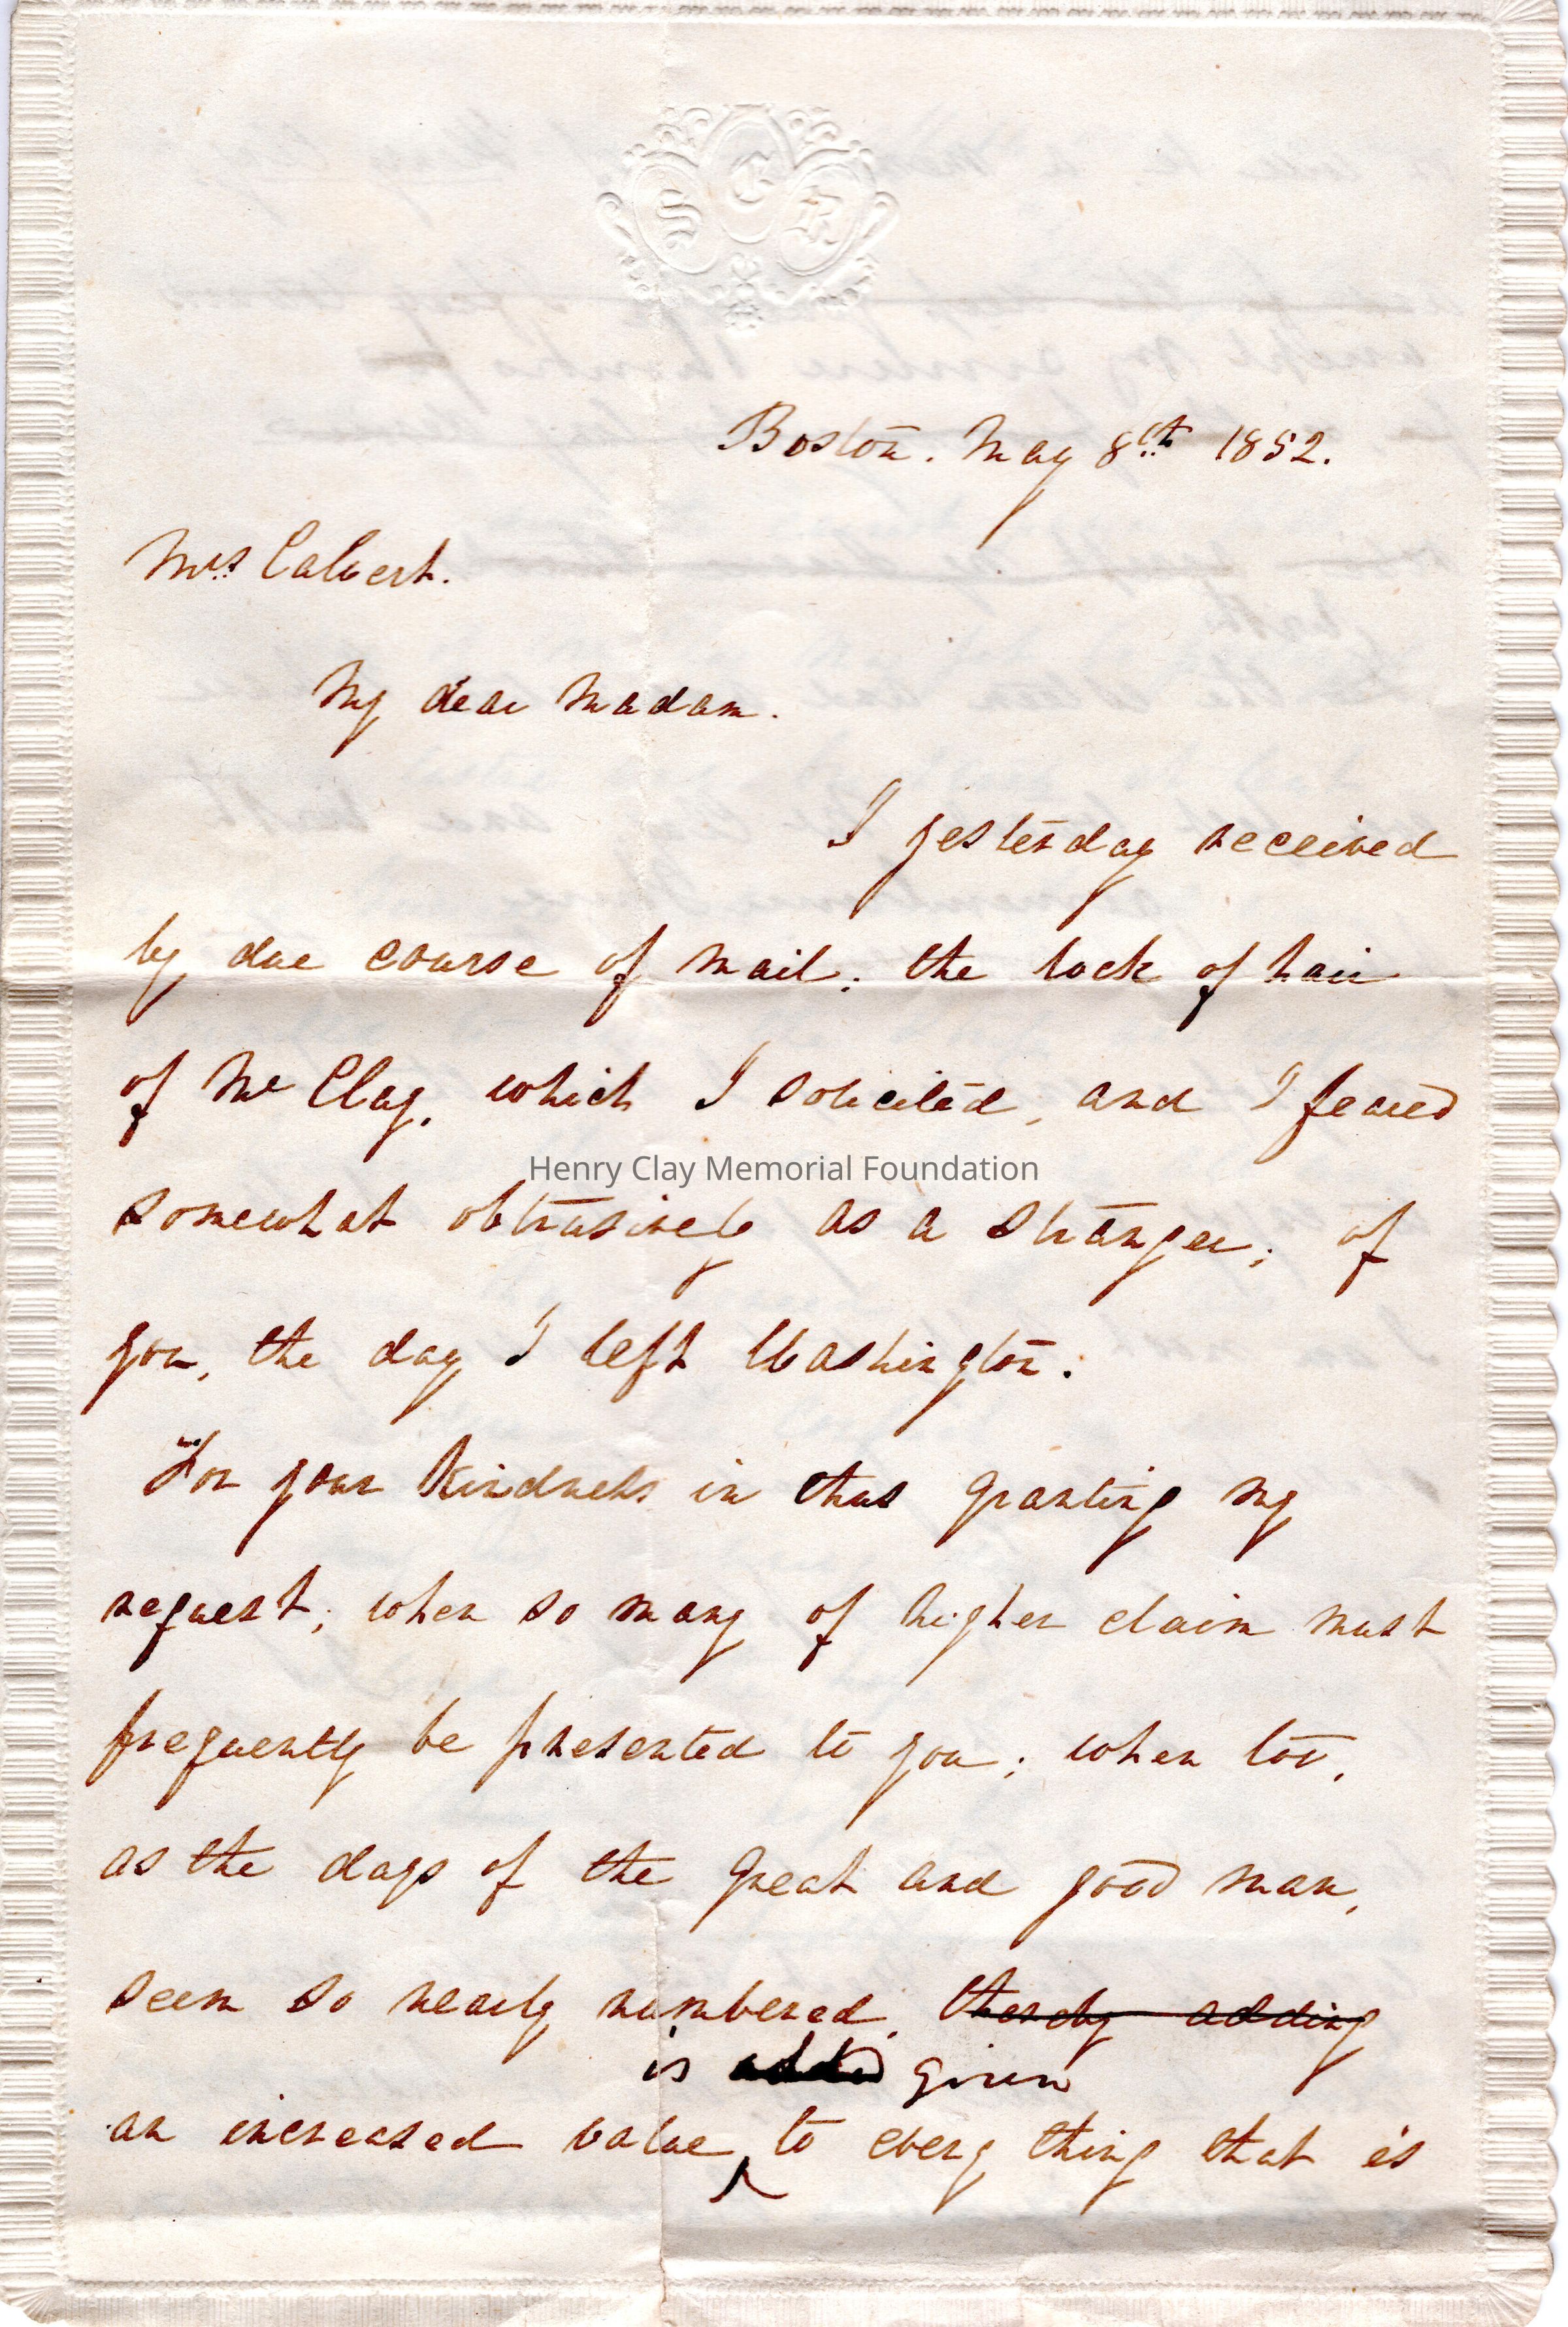 S C R
Boston. May 8th 1852.
Mrs Calvert.
My dear Madam.
I yesterday received
by due course of mail; the lock of hair
of Mr Clay, which I solicited, and I feared
Henry Clay Memorial Foundation
somewhat obtrusively as a stranger; of
you, the day I left Washington.
For your kindness in thus granting my
request; when so many of higher claim must
frequently be presented to you; when too,
as the days of the great and good man,
seem so nearly numbered, thereby adding
is added given
an increased value ‸ to every thing that is